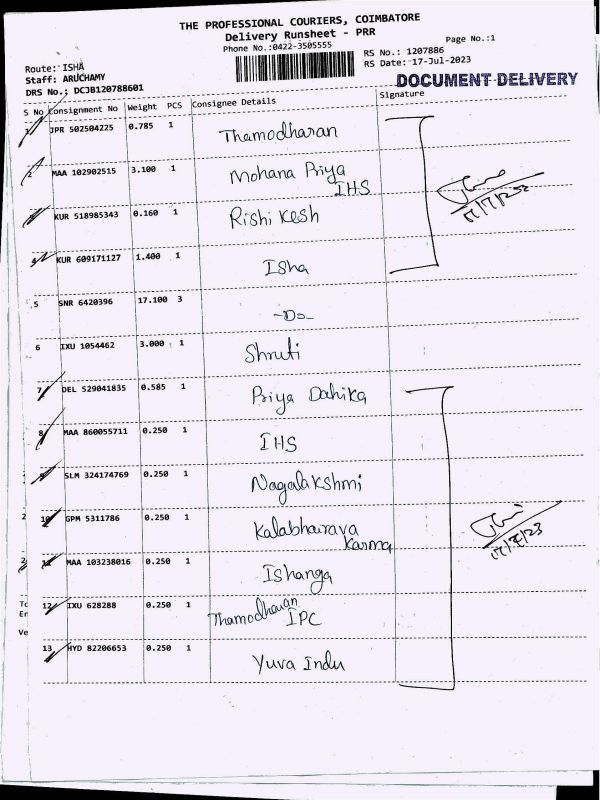 THE PROFESSIONAL COURIERS, COIMBATORE
Delivery Runsheet - PRR
Phone No.:0422-3505555
Page No.:1
RS No.: 1207886
RS Date: 17-Jul-2023
Route: ISHA
Staff: ARUCHAMY
DRS No.: DCJB120788601
DOCUMENT DELIVERY
S No Consignment No Weight PCS Consignee Details Signature
1 JPR 502504225 0.785 1 Thamodharan
2 MAA 102902515 3.100 1 Mohana Priya
IHS
KUR 518985343 0.160 1 Rishi Kesh
4 KUR 609171127 1.400 1 Isha
5 SNR 6420396 17.100 3 -Do-
6 IXU 1054462 3.000 1 Shruti
7 DEL 529041835 0.585 1 Priya Dahika
8 MAA 860055711 0.250 1 IHS
9 SLM 324174769 0.250 1 Nagalakshmi
10 GPM 5311786 0.250 1 Kalabhairava
Karma
11 MAA 103238016 0.250 1 Ishanga
12 IXU 628288 0.250 1 Thamodharan
IPC
13 HYD 82206653 0.250 1 Yuva Indu